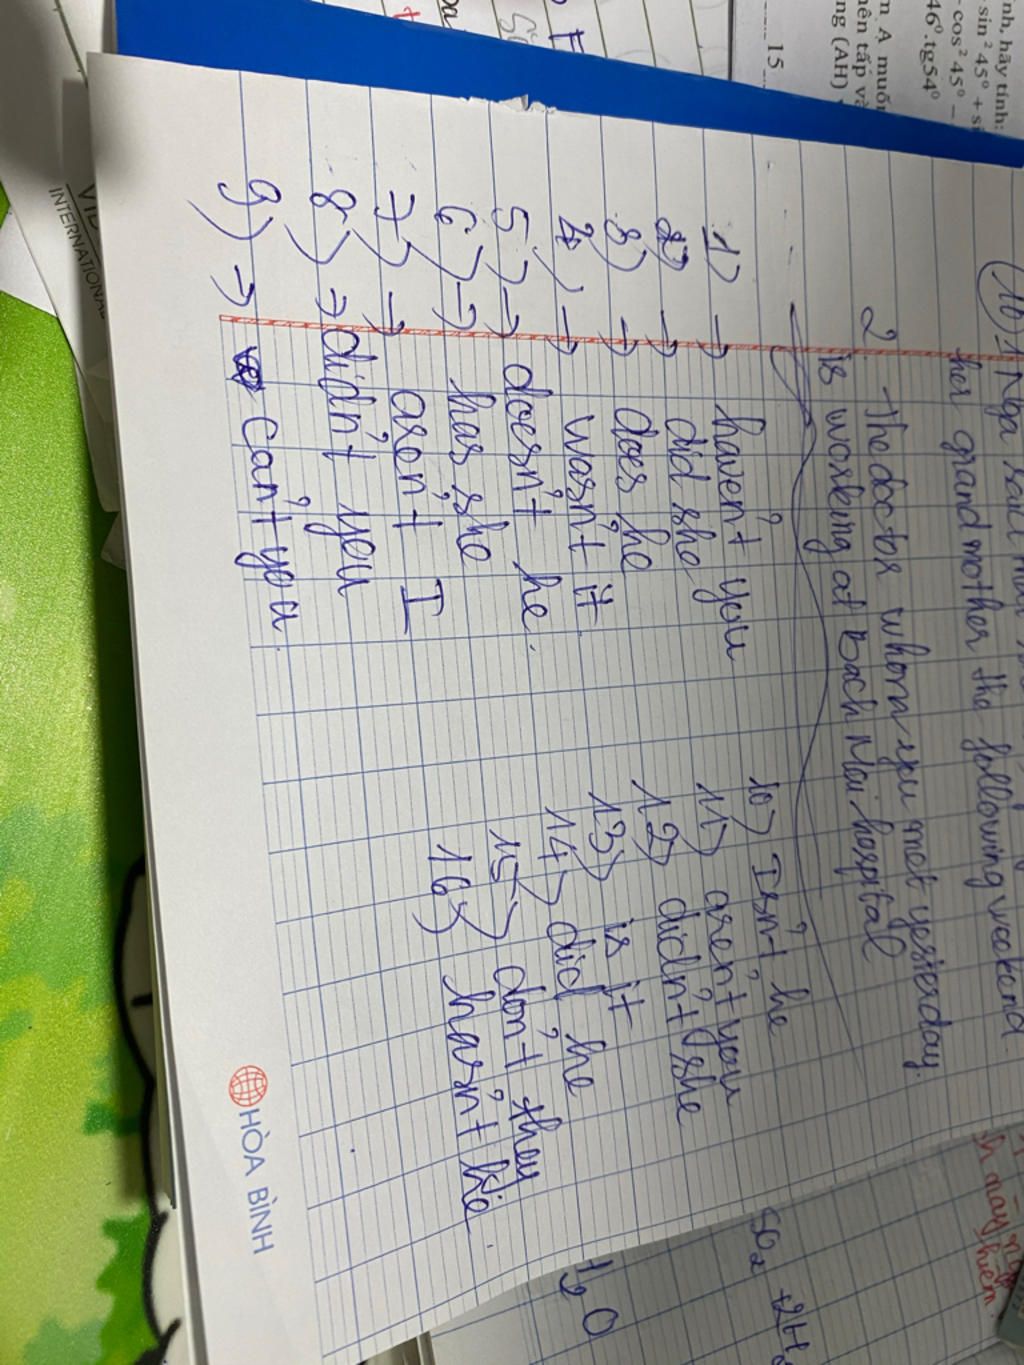 nh, hãy tính:
sin² 45° + si
cos² 45° –
46°.tg54°
m. A muốn
nên tấp và
ng (AH)
15
10) 1 Nga said that
her grand mother the following weekend.
2 The doctor whom you met yesterday.
is working at Bach Mai hospital
1) → haven't you
2) → did she
3) → does he
4) → wasn't it
5) → doesn't he.
6) → has she
7) → aren't I
8) → didn't you
9) → can't you.
10) Isn't he
11) aren't you
12) didn't she
13) is it
14) did he
15) don't they
16) hasn't he.
HÒA BÌNH
INTERNATIONAL
SO₂ + 2H₂
H₂O